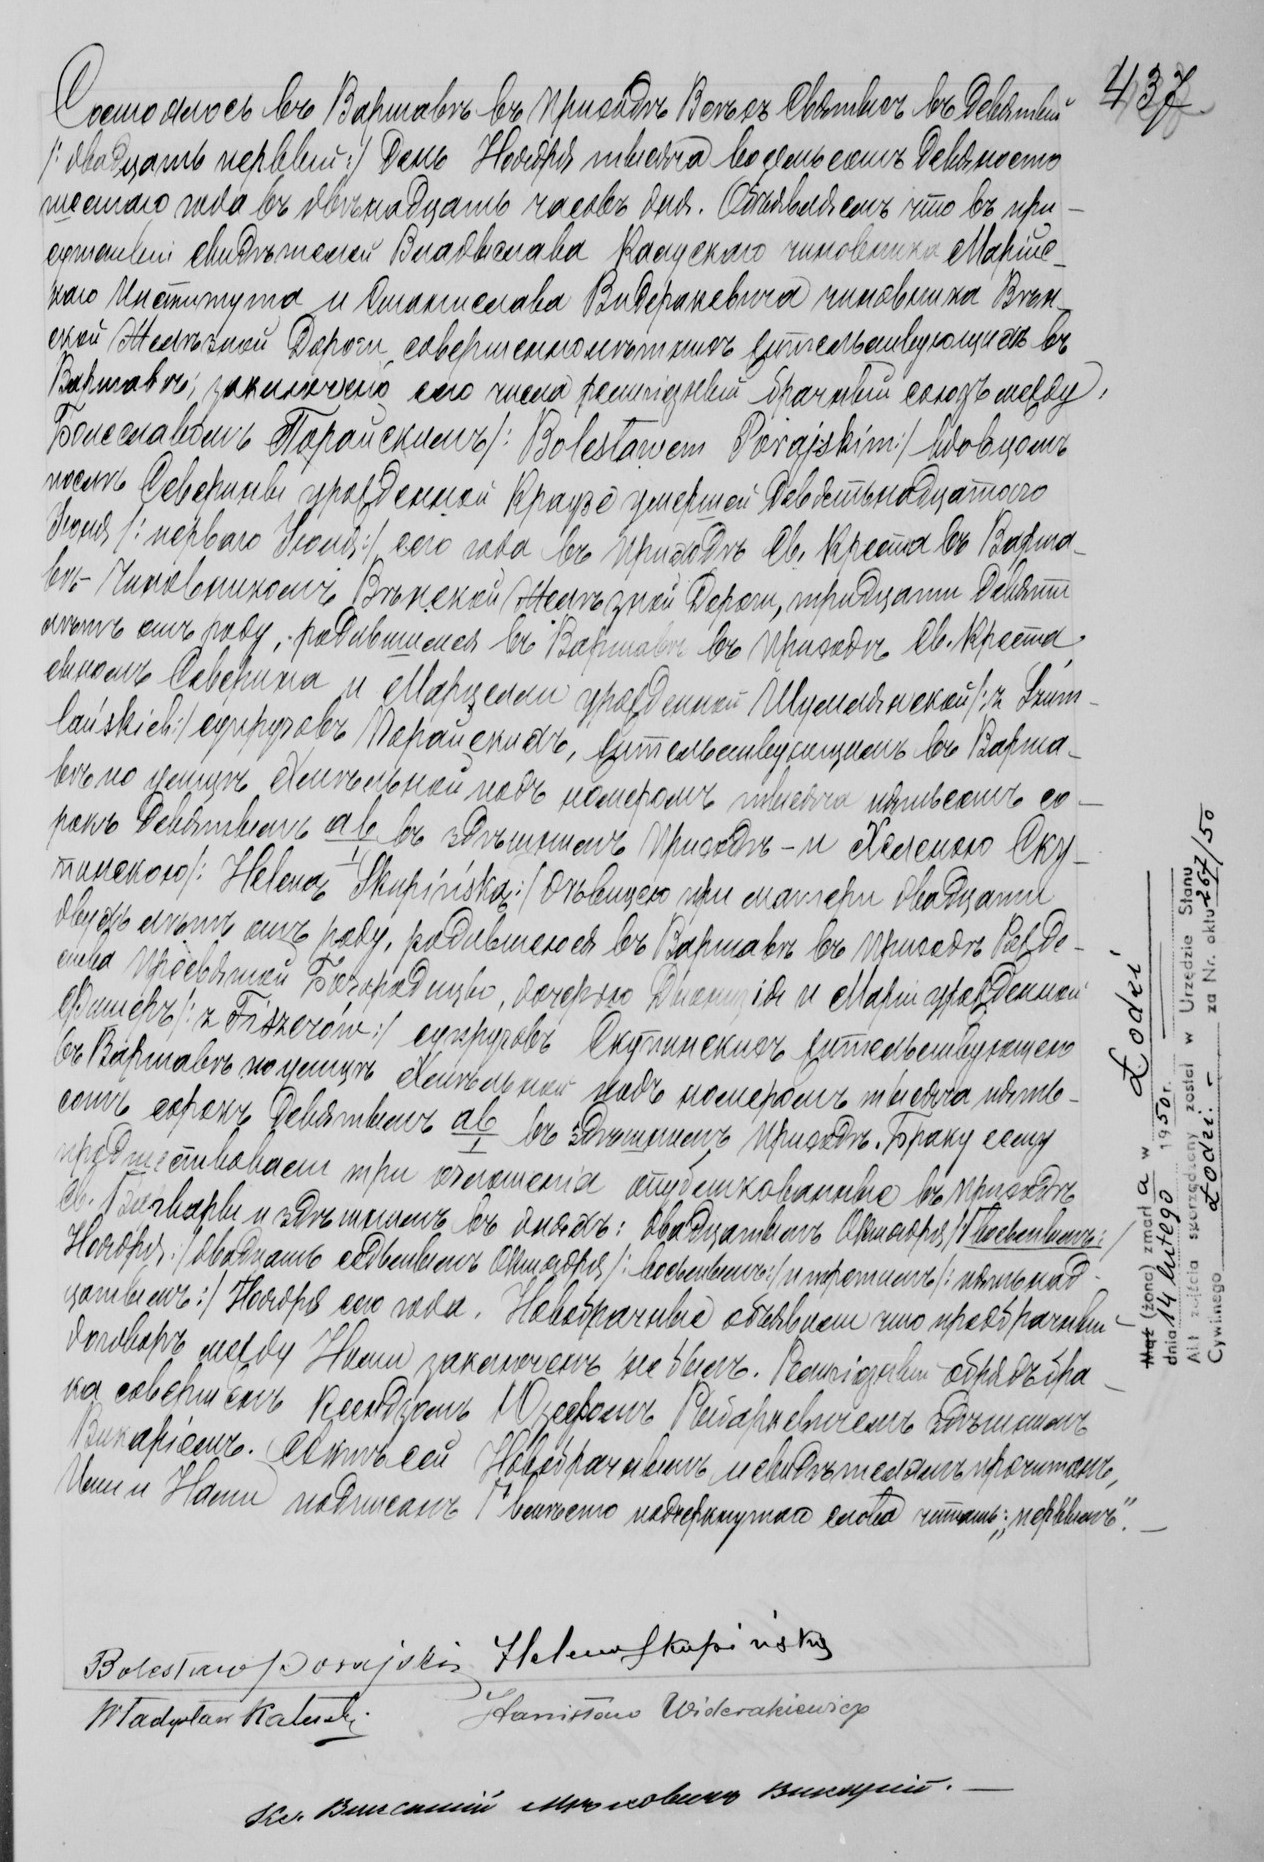 437
Состоялось въ Варшавѣ въ приходѣ Всѣхъ Святыхъ въ девятый
/: двадцать первый :/ день Ноября тысяча восемьсотъ девяносто
шестаго года въ двѣнадцать часовъ дня. Объявляемъ что въ при-
сутствіи свидѣтелей Владыслава Калускаго чиновника Маріинс-
каго Института и Станислава Видеракевича чиновника Вѣн-
ской Желѣзной Дороги, совершеннолѣтнихъ жительствующихъ въ
Варшавѣ, заключенъ сего числа религіозный брачный союзъ между
Болеславомъ Порайскимъ /: Bolesławem Porajskim :/ вдовцомъ
послѣ Северины урожденной Краузе умершей девятьнадцатого
Іюня /: перваго Іюля :/ сего года въ приходѣ Св. Креста въ Варша-
вѣ - чиновникомъ Вѣнской Желѣзной Дороги, тридцати девяти
лѣтъ отъ роду, родившимся въ Варшавѣ въ приходѣ Св. Креста
сыномъ Северина и Марцелли урожденной Шумлянской /: z Szum-
lańskich :/ супруговъ Порайскихъ, жительствующимъ въ Варша-
вѣ по улицѣ Хмѣльной подъ номеромъ тысяча пятьсотъ со-
рокъ девятымъ ab/1 въ здѣшнемъ приходѣ - и Хеленою Ску-
пинскою /: Heleną Skupińską :/ дѣвицею при матери двадцати
двухъ лѣтъ отъ роду, родившеюся въ Варшавѣ въ приходѣ Рожде-
ства Пресвятой Богородицы, дочерью Діонизія и Маріи урожденной
Фишеръ /: z Fiszerów :/ супруговъ Скупинскихъ жительствующею
въ Варшавѣ по улицѣ Хмѣльной подъ номеромъ тысяча пять-
сотъ сорокъ девятымъ ab/1 въ здѣшнемъ приходѣ. Браку сему
предшествовали три оглашенія опубликованные въ приходѣ
Св. Варвары и здѣшнемъ въ дняхъ: двадцатымъ Октября /: восьмымъ :/
Ноября :/ двадцать седьмымъ Октября /: восьмымъ :/ и третьимъ /: пятьнад-
цатымъ :/ Ноября сего года. Новобрачные объявили что предбрачный
договоръ между Ними заключенъ не былъ. Религіозный обрядъ бра-
ка совершенъ Ксендзомъ Юзефомъ Рыбаркевичемъ здѣшнимъ
Викаріемъ. Актъ сей Новобрачнымъ и свидѣтелямъ прочитанъ,
Ими и Нами подписанъ Г вмѣсто подчеркнутаго слова читать: „первымъ“. —
Bolesław Porajski Helena Skupińska
Władysław Kałuski. Stanisław Widerakiewicz
Кс. Викарій. —
Mąż (żona) zmarł a w Łodzi
dnia 14 lutego 1950 r.
Akt zejścia sporządzony został w Urzędzie Stanu
Cywilnego Łodzi. - za Nr. aktu 267/50